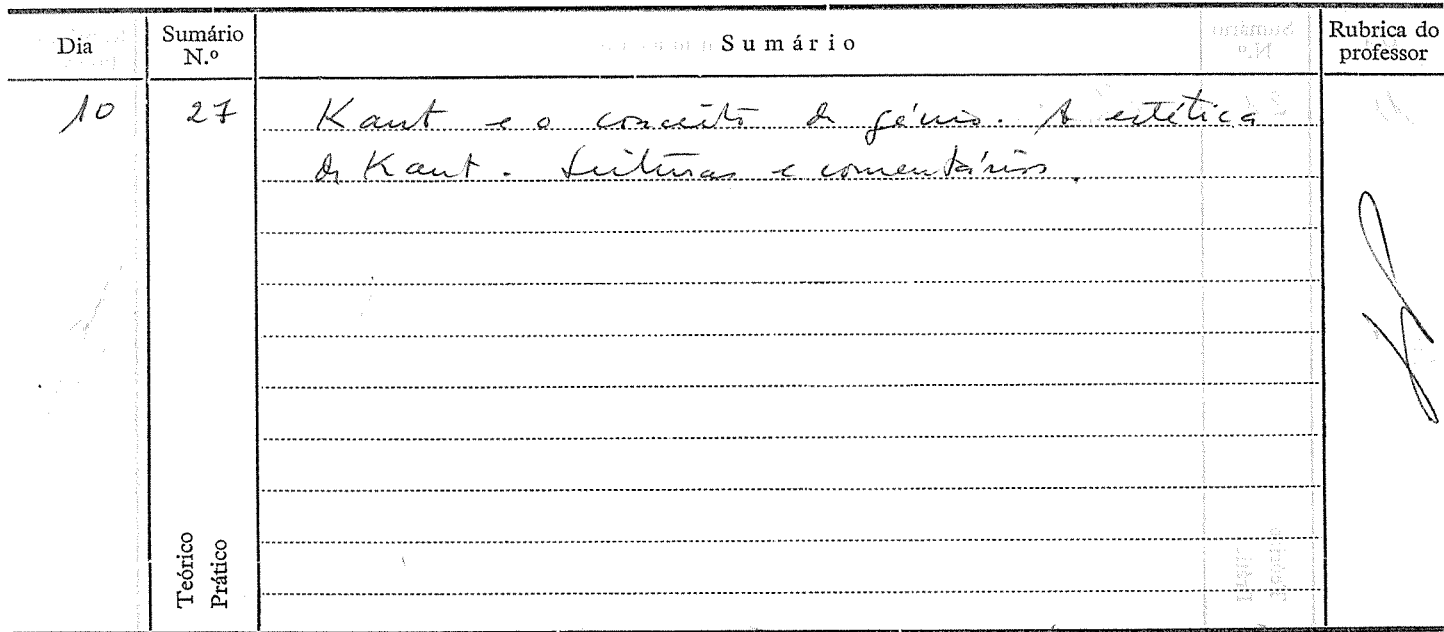 Dia Sumário N.º Sumário Rubrica do professor
10 27 Kant e o conceito de génio. A estética
de Kant. Leituras e comentários.
Teórico
Prático